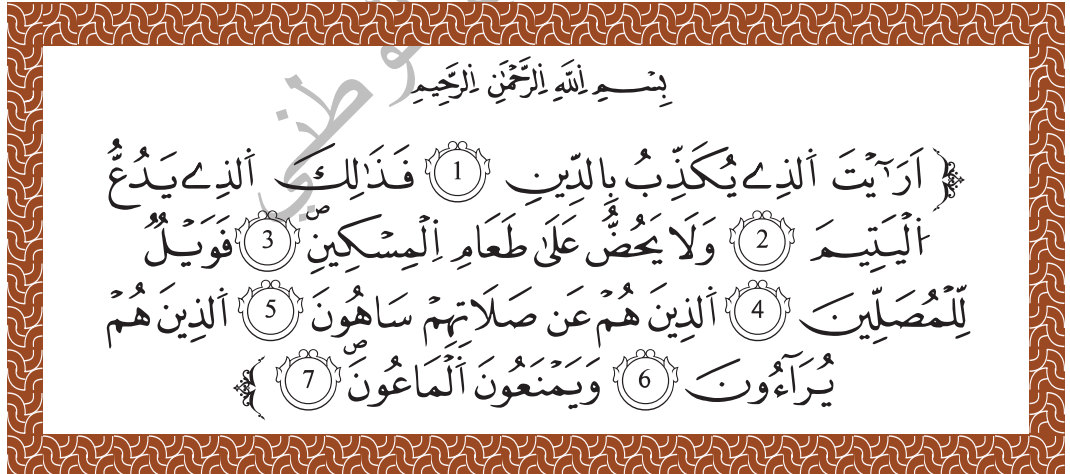 بِسْمِ اِ۬للَّهِ اِ۬لرَّحْمَٰنِ اِ۬لرَّحِيمِ
﴿ اَرَٰٓيْتَ اَ۬لذِے يُكَذِّبُ بِالدِّينِ 1 فَذَٰلِكَ اَ۬لذِے يَدُعُّ
اُ۬لْيَتِيمَ 2 وَلَا يَحُضُّ عَلَىٰ طَعَامِ اِ۬لْمِسْكِينِۖ 3 فَوَيْلٌ
لِّلْمُصَلِّينَ 4 اَ۬لذِينَ هُمْ عَن صَلَاتِهِمْ سَاهُونَ 5 اَ۬لذِينَ هُمْ
يُرَآءُونَ 6 وَيَمْنَعُونَ اَ۬لْمَاعُونَۖ 7 ﴾